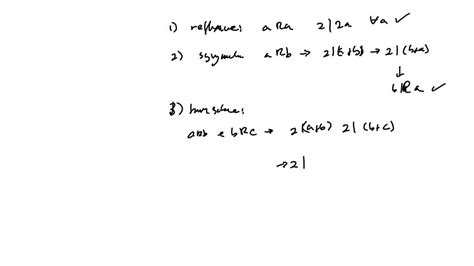 1) reflexive: aRa 2|2a ∀a ✓
2) aRb → 2|(a+b) → 2|(b+a)
↓
bRa ✓
3)
aRb e bRc → 2|(a+b) 2|(b+c)
→ 2|